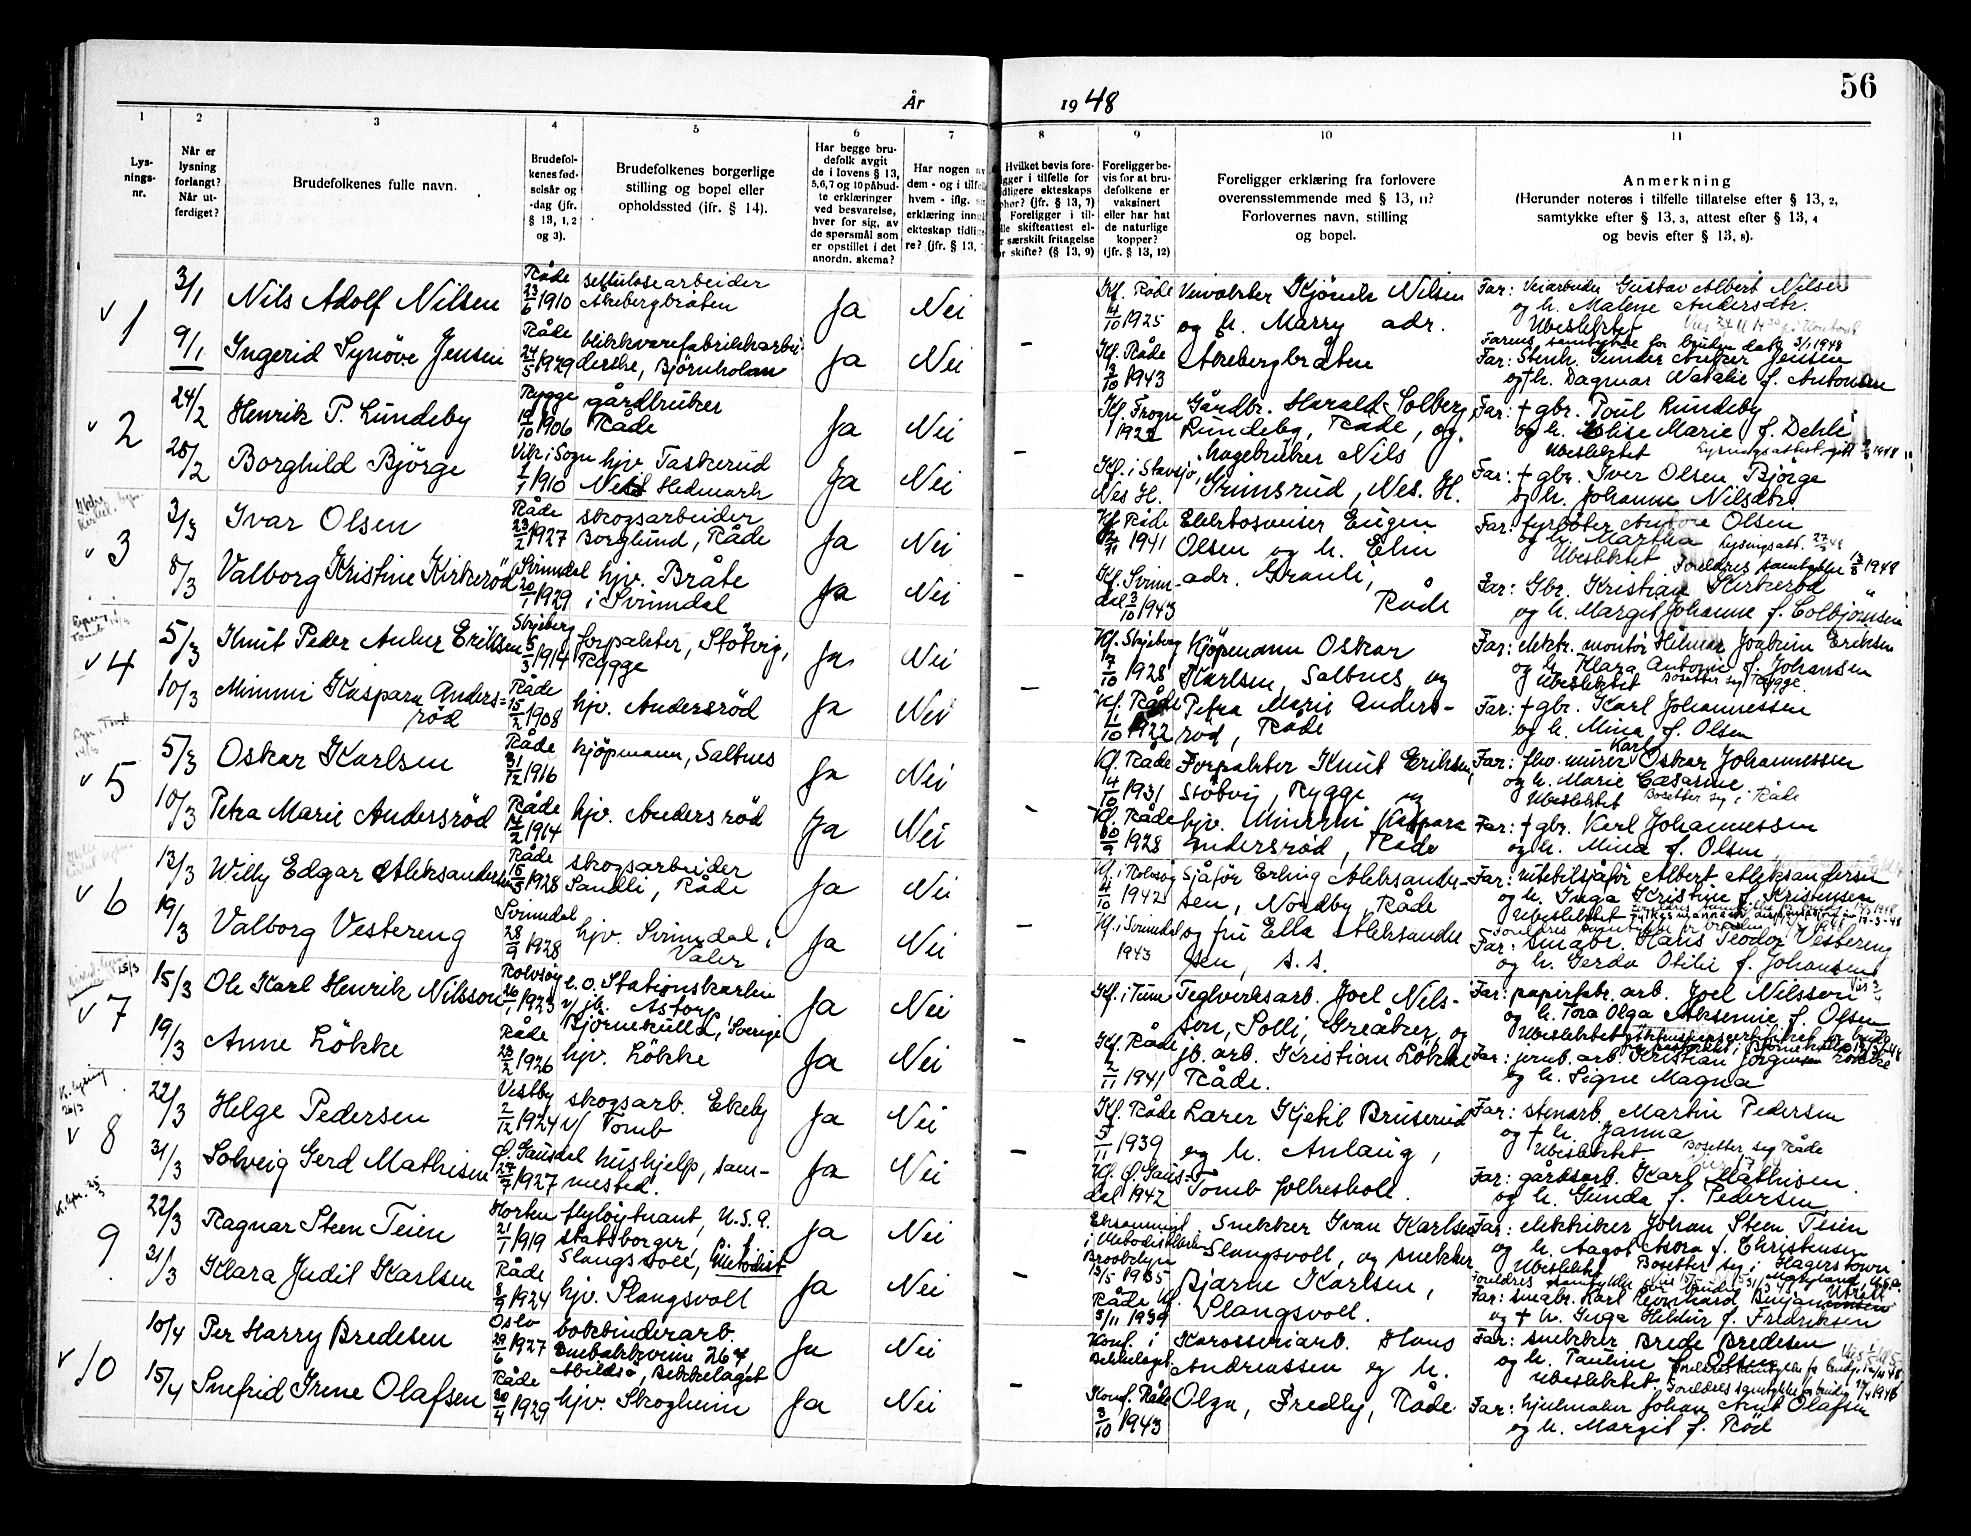 56
År 1948
1 2 3 4 5 6 7 8 9 10 11
Lysningsnr.
Når er lysning forlangt? Når utferdiget?
Brudefolkenes fulle navn.
Brudefolkenes fødselsår og -dag (jfr. § 13, 1, 2 og 3).
Brudefolkenes borgerlige stilling og bopel eller opholdssted (ifr. § 14).
Har begge brudefolk avgit de i lovens § 13, 5,6,7 og 10 påbudte erklæringer ved besvarelse, hver for sig, av de spørsmål som er opstillet i det anordn. skema?
Har nogen av dem - og i tilfelle hvem - iflg. erklæring ekteskap re? (jfr. § 13,
Hvilket bevis forelligger i tilfelle for
ekteskaps
(jfr. § 13, 7)
Foreligger i tilfelle skifteattest eller særskilt fritagelse for skifte? (§ 13, 9)
Foreligger bevis for at brudefolkene er vaksinert eller har hat de naturlige kopper? (jfr. § 13, 12)
Foreligger erklæring fra forlovere overensstemmende med § 13, 11? Forlovernes navn, stilling og bopel.
Anmerkning
(Herunder noteres i tilfelle tillatelse efter § 13, 2, samtykke efter § 13, 3, attest efter § 13, 4 og bevis efter § 13, 8).
1 3/1 Nils Adolf Nilsen Råde 23/6 1910 cellulosearbeider Akebergbråten Ja Nei Kf. Råde 4/10 1925 Nilsen og h. Marry adr. Far: Veiarbeider Gustav Albert Nilsen og h. Malene Andersdtr. Ubeslektet
9/1 Ingerid Synöve Jensen Råde 24/5 1929 blikkvarefabrikkarbeiderske, Björnholan Ja Nei - Kf. Råde 3/10 1943 Akebergbråten Farens samtykke for bruden datt. 3/1 1948 Far: Stenh. Gunder Anker Jensen og h. Dagmar Natalie f. Antonsen
2 24/2 Henrik P. Lundeby Rygge 1906 gårdbruker Råde Ja Nei Kf. Frogn 1922 Gårdbr. Harald Solberg Lundeby, Råde, og Far: + gbr. Poul Lundeby og h. Elise Marie f. Dehli Ubeslektet
28/2 Borghild Björge Vik i Sogn 1/1 1910 hjv. Taskerud Nes Hedmark Ja Nei - Kf. i Stavsjö, Nes H. hagebruker Nils Grimsrud, Nes. H. Far: + gbr. Iver Olsen Björge og h. Johanne Nilsdtr.
3 3/3 Ivar Olsen Råde 23/2 1927 skogsarbeider Borglund, Råde Ja Nei Kf. Råde 1941 Elektrosveiser Eugen Olsen og h. Elin Far: fyrböter Olsen og h. Martha Ubeslektet Foreldres samtykke 1948
8/3 Valborg Kristine Kirkeröd Svinndal 20/1 1929 hjv. Bråte i Svinndal Ja Nei - Kf. Svinndal 3/10 1943 adr. Granli, Råde Far: Gbr. Kristian Kirkeröd og h. Margit Johanne f. Colbjörnsen
4 5/3 Knut Peder Anker Eriksen Skjeberg 1914 forpakter, Störvig, Rygge Ja Nei Kf. Skjeberg 7/10 1928 Kjöpmann Oskar Karlsen, Saltnes, og Far: elektr. montör Hilmar Joakim Eriksen og h. Klara Antonie f. Johansen Ubeslektet Bosetter seg Rygge.
10/3 Mimmi Kaspara Andersröd Råde 15/2 1908 hjv. Andersröd Ja Nei - Kf. Råde 1/10 1922 Petra Marie Andersröd, Råde Far: + gbr. Karl Johannessen og h. Mina f. Olsen
5 5/3 Oskar Karlsen Råde 31/12 1916 kjöpmann, Saltnes Ja Nei Kf. Råde 4/10 1931 Forpakter Knut Eriksen, Rygge og Far: murer Karl Oskar Johannessen og h. Marie Ubeslektet Bosetter seg i Råde
10/3 Petra Marie Andersröd Råde 1914 hjv. Andersröd Ja Nei - Kf. Råde 1928 hjv. Mimmi Kaspara Andersröd, Råde Far: + gbr. Karl Johannessen og h. Mina f. Olsen
6 13/3 Willy Edgar Aleksandersen Råde 1928 skogsarbeider Sandli, Råde Ja Nei Kf. i Rolvsöy 4/10 1942 Sjåför Erling Aleksandersen, Nordby, Råde Far: rutebilsjåför Albert Aleksandersen og h. Inga Kristine f. Kristensen Ubeslektet
19/3 Valborg Vestereng Svinndal 28/9 1928 hjv. Svinndal, i Våler Ja Nei Kf. i Svinndal 1943 og fru Ella Aleksandersen, s.s. Far: småbr. Hans Teodor Vestereng og h. Gerda Otilie f. Johansen
7 15/3 Ole Karl Henrik Nilsson Rolvsöy 1923 e.o. Stationskarlen v/ jb. Astorp Björnekulla, Sverige Ja Nei Kf. i Tune Teglverksarb. Joel Nilsson, Solli, Greåker, og Far: papirfabr. arb. Joel Nilsson og h. Tora Olga Aksenie f. Olsen Ubeslektet
19/3 Anne Lökke Råde 23/2 1926 hjv. Lökke Ja Nei - Kf. Råde 2/11 1941 jb. arb. Kristian Lökke Råde. Far: jernb. arb Kristian Jörgensen Lökke og h. Signe Magna
8 22/3 Helge Pedersen Vestby 2/12 1924 skogsarb. Ekeby v/ Tomb Ja Nei Kf. Råde 5/11 1939 Lærer Kjetil Bruserud og h. Anlaug, Far: stenarb. Martin Pedersen og + h. Janna Ubeslektet Bosetter seg Råde
31/3 Solveig Gerd Mathisen Ö. Gausdal 1927 hushjelp, sammested. Ja Nei - Kf. Ö. Gausdal 1942 Tomb folkeskole. Far: gårdsarb. Karl Mathisen og h. Gunda f. Pedersen
9 22/3 Ragnar Steen Teien Horten 21/1 1919 flylöytnant, U.S.A. statsborger, Slangsvoll, Metodist Ja Nei i Metodistkirken Brooklyn 1935 Snekker Ivan Karlsen Slangsvoll, og snekker Far: elektriker Johan Steen Teien og h. Aagot Asora f. Christensen Ubeslektet Bosetter seg i Hagerstown Maryland, U.S.A.
31/3 Klara Judil Karlsen Råde 8/9 1924 hjv. Slangsvoll Ja Nei - Råde Kf. 5/11 1939 Bjarne Karlsen, Slangsvoll. Far: småbr. Karl Reinhard Benjaminsen og + h. Inga Hildur f. Fredriksen
10 10/4 Per Harry Bredesen Oslo 29/6 1927 bokbinderarb. Enebakkveien 264 Abildsö, Bekkelaget Ja Nei Konf. i Bekkelaget Karosseriarb. Hans Andreassen og h. Far: snekker Brede Bredesen og h. Pauline f. Olsen Ubeslektet
15/4 Snefrid Irene Olafsen Råde 1929 hjv. Skogheim Ja Nei - Konf. Råde 3/10 1943 Olga, Fredly, Råde Far: hjulmaker Johan Arnt Olafsen og h. Margit f. Röd